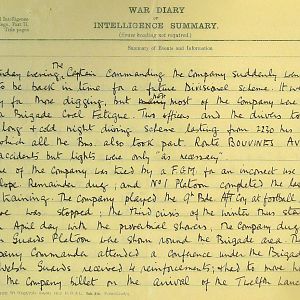 WAR DIARY
of
Intelligence
INTELLIGENCE SUMMARY.
Part II.
Title pages
(Erase heading not required.)
Summary of Events and Information
evening The Captain Commanding the Company suddenly
to be back in time for a future Divisional scheme. It
for more digging, but most of the Company were
Brigade Coal Fatigue. This officers and the drivers
long & cold night driving scheme lasting from 2230 hrs
which all the Bns. also took part. Route BOUVINES AV
accidents but lights were only "as necessary"
of the Company was tried by a F.G.M. for an incorrect use
Remainder dug; and No 1 Platoon completed the
training. The Company played the 9th Bde Coy at football
was stopped; the third crisis of the winter thus
April day with the proverbial showers. The Company dug
Guards Platoon were shown round the Brigade area. The
Company Commander attended a Conference under the
Welsh Guards received 4 reinforcements; & had to move
the Company billet on the arrival of the Twelfth